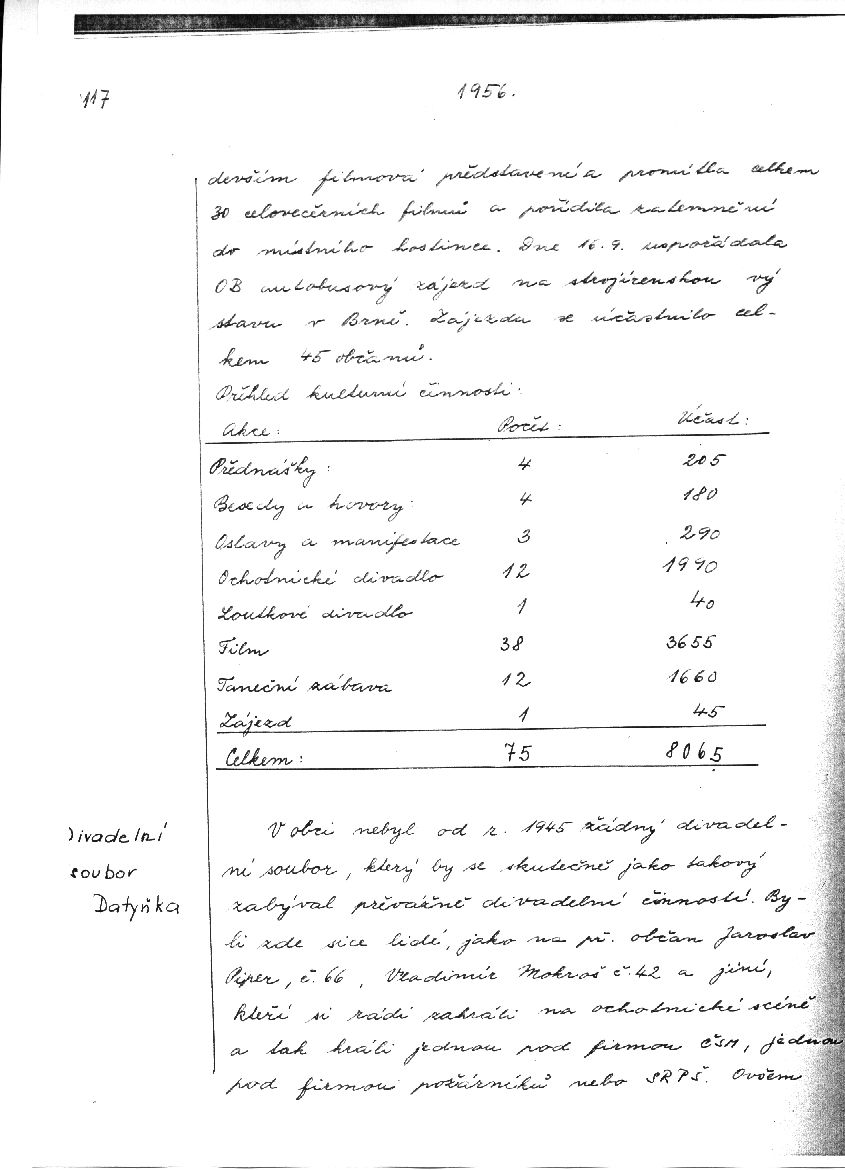 117
1956.
devším filmová představení a promítla celkem
30 celovečerních filmů a pořídila zatemnění
do místního hostince. Dne 16.9. uspořádala
OB autobusový zájezd na strojírenskou vý
stavu v Brně. Zájezdu se účastnilo cel-
kem 45 občanů.
Přehled kulturní činnosti:
Akce: Počet: Účast:
Přednášky: 4 205
Besedy a hovory: 4 180
Oslavy a manifestace 3 290
Ochotnické divadlo 12 1990
Loutkové divadlo 1 40
Film 38 3655
Taneční zábava 12 1660
Zájezd 1 45
Celkem: 75 8065
Divadelní
soubor
Datyňka
V obci nebyl od r. 1945 žádný divadel-
ní soubor, který by se skutečně jako takový
zabýval převážně divadelní činností. By-
li zde sice lidé, jako na př. občan Jaroslav
Piper, č. 66, Vladimír Mokroš č. 42 a jiní,
kteří si rádi zahráli na ochotnické scéně
a tak hráli jednou pod firmou ČSM, jednou
pod firmou požárníků nebo SRPŠ. Ovšem